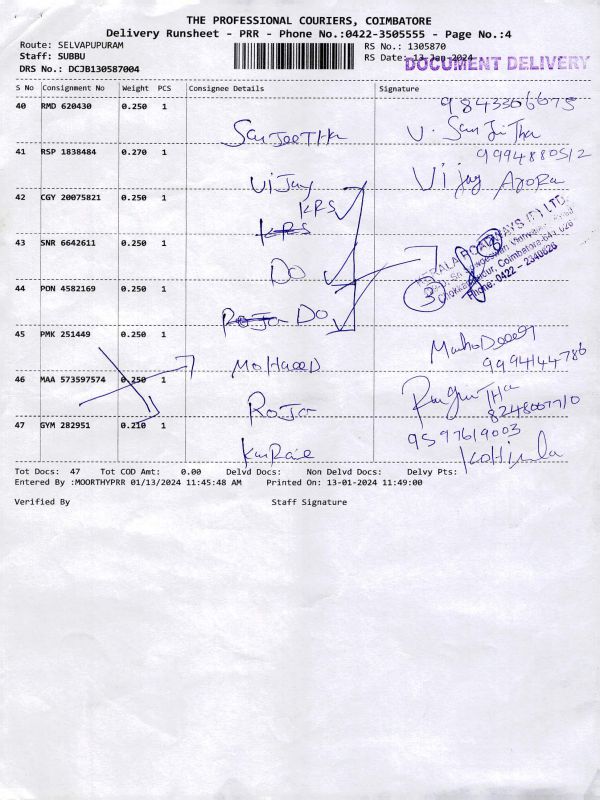 THE PROFESSIONAL COURIERS, COIMBATORE
Delivery Runsheet - PRR - Phone No.:0422-3505555 - Page No.:4
Route: SELVAPUPURAM
RS No.: 1305870
Staff: SUBBU
RS Date: 13-Jan-2024
DOCUMENT DELIVERY
DRS No.: DCJB130587004
S No Consignment No Weight PCS Consignee Details Signature
40 RMD 620430 0.250 1
9843306675
SanJeeTHa
V. SanJiTha
41 RSP 1838484 0.270 1
9994880512
Vijay
Vijay
42 CGY 20075821 0.250 1
KRS
KRS
43 SNR 6642611 0.250 1
DO
KERALA ROADWAYS (P) LTD.
Coimbatore-641 026
Phone: 0422 - 2340626
3
44 PON 4582169 0.250 1
RoJa DO
45 PMK 251449 0.250 1
MoHaeeD
9994144786
46 MAA 573597574 0.250 1
RoJa
8248007710
47 GYM 282951 0.210 1
9597619003
Tot Docs: 47 Tot COD Amt: 0.00 Delvd Docs: Non Delvd Docs: Delvy Pts:
Entered By :MOORTHYPRR 01/13/2024 11:45:48 AM Printed On: 13-01-2024 11:49:00
Verified By Staff Signature